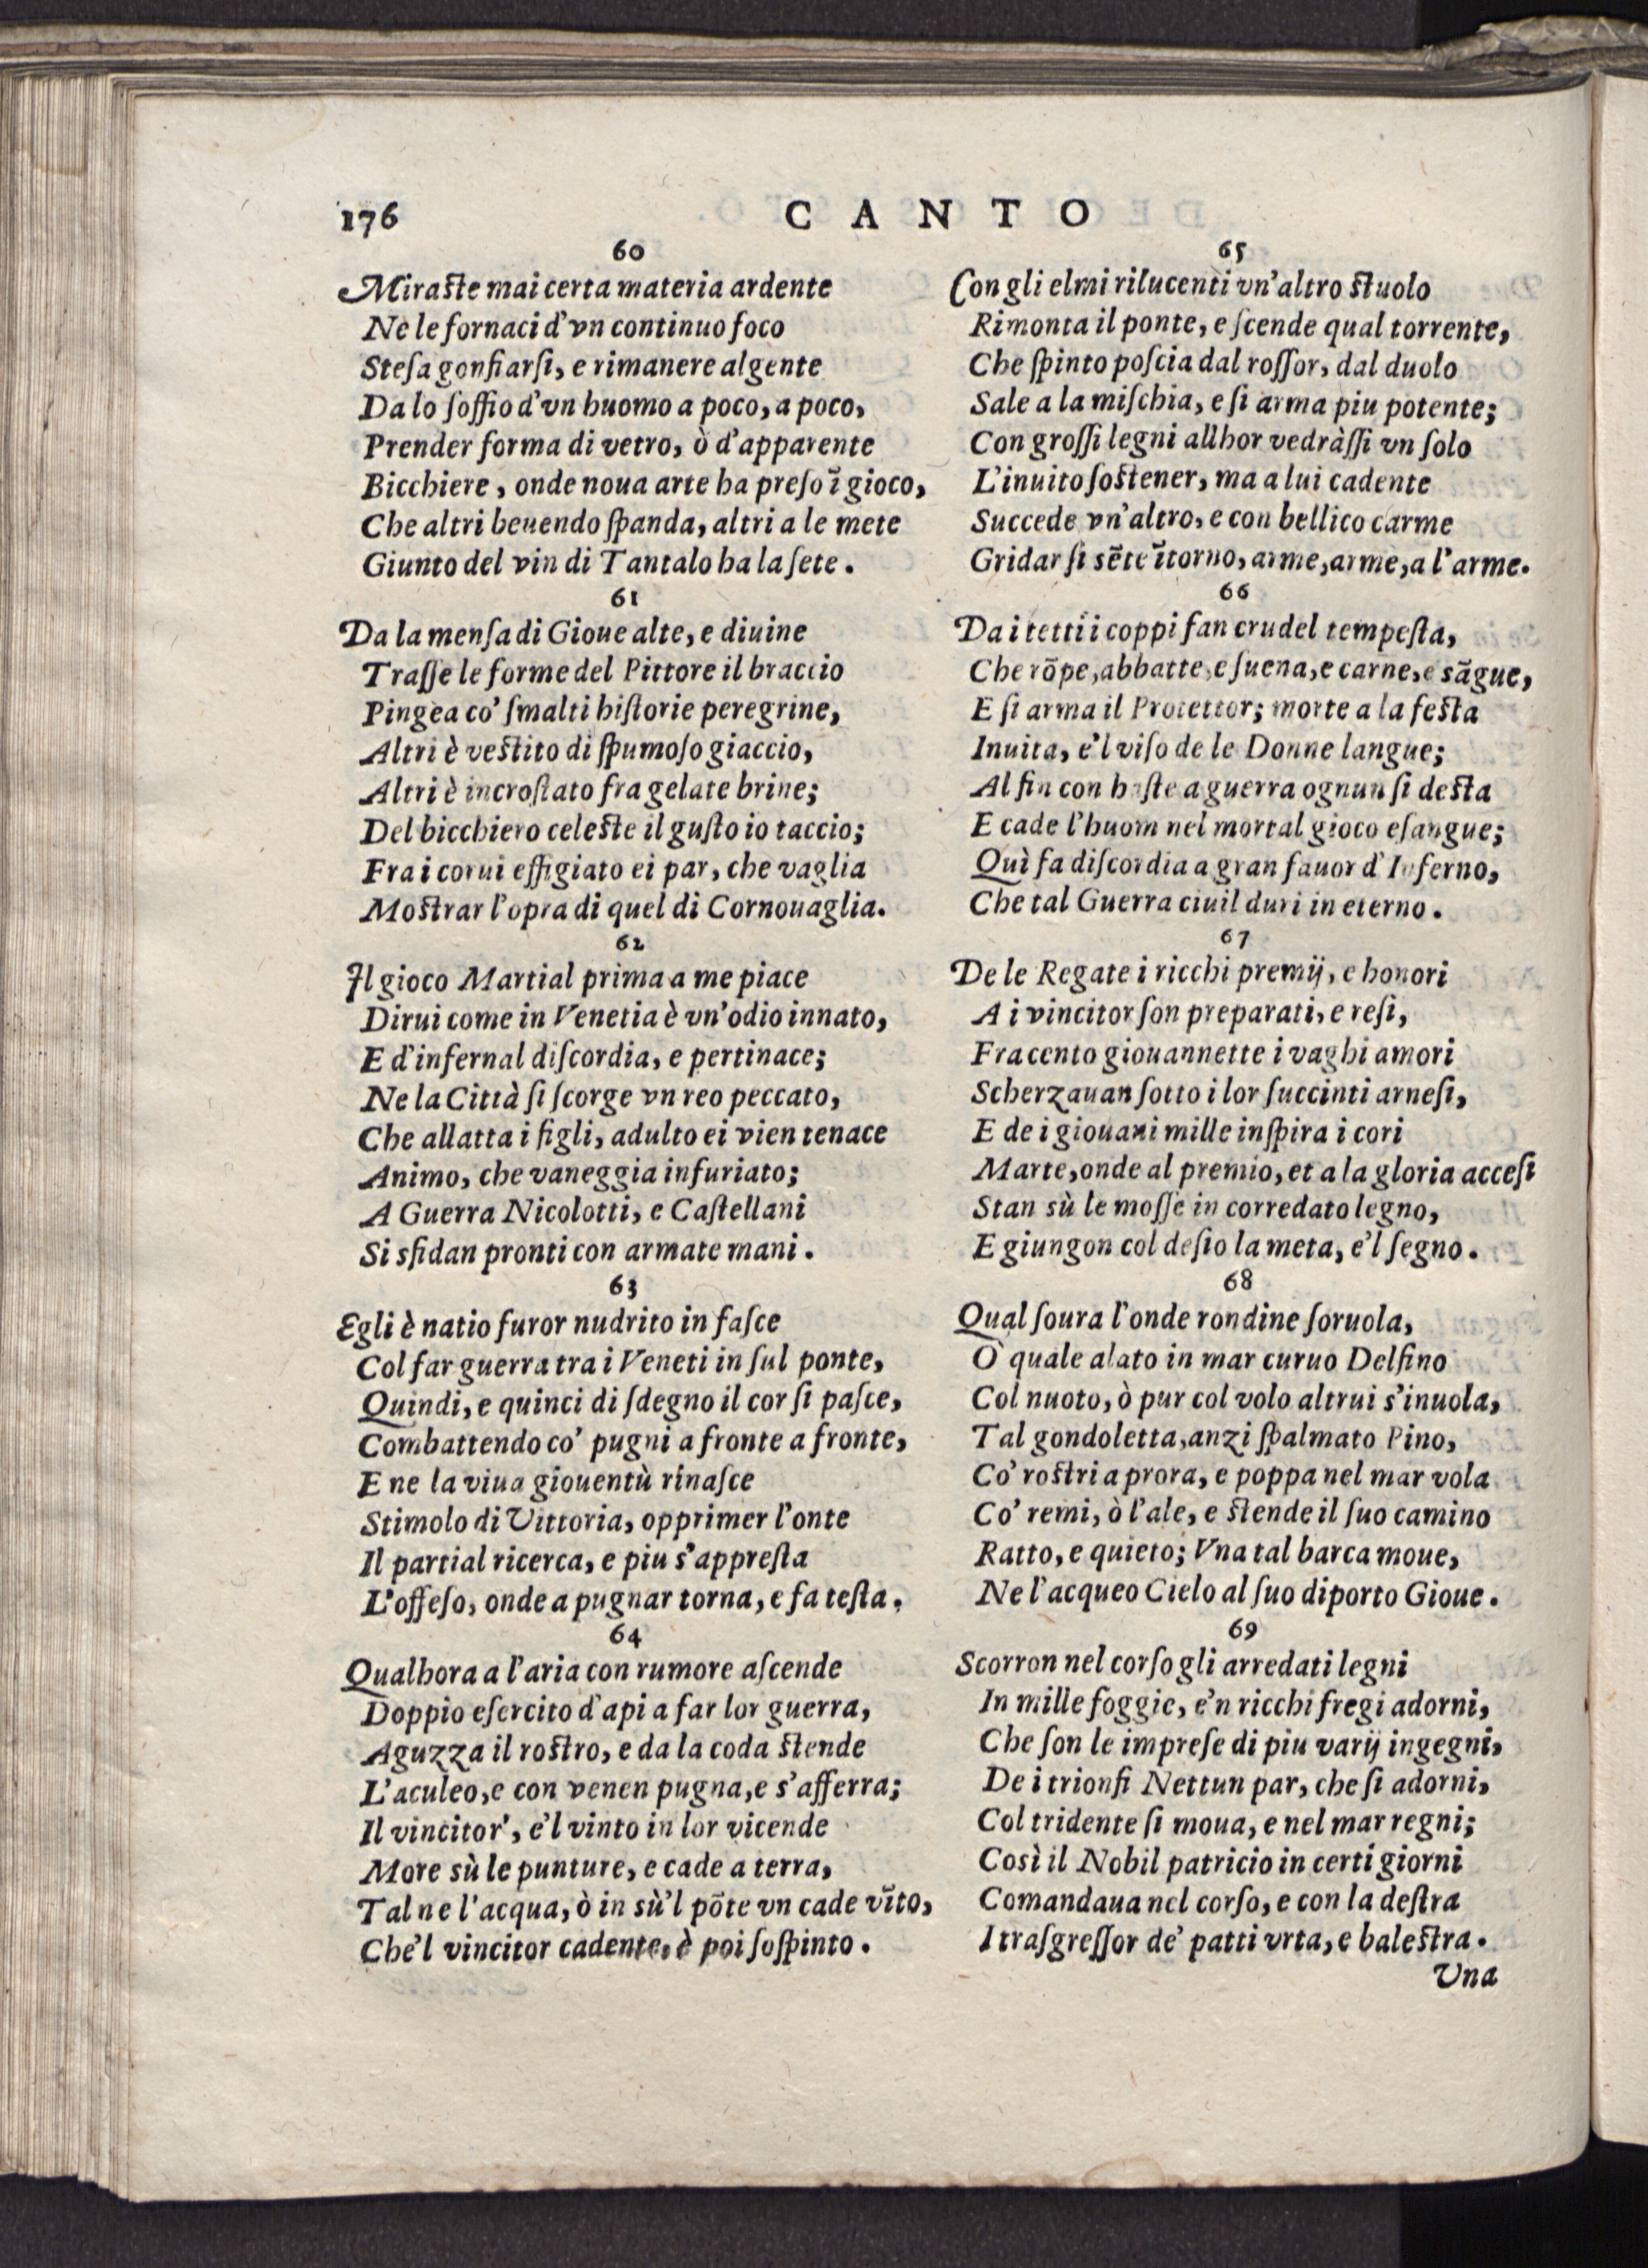 176
CANTO
60
Miraſte mai certa materia ardente
Ne le fornaci d'vn continuo foco
Steſa gonfiarſi, e rimanere algente
Da lo ſoffio d'vn huomo a poco, a poco,
Prender forma di vetro, ò d'apparente
Bicchiere, onde noua arte ha preſo ĩ gioco,
Che altri beuendo ſpanda, altri a le mete
Giunto del vin di Tantalo ha la ſete.
61
Da la menſa di Gioue alte, e diuine
Traſſe le forme del Pittore il braccio
Pingea co' ſmalti hiſtorie peregrine,
Altri è veſtito di ſpumoſo giaccio,
Altri è incroſtato fra gelate brine;
Del bicchiero celeſte il guſto io taccio;
Fra i corui effigiato ei par, che vaglia
Moſtrar l'opra di quel di Cornouaglia.
62
Il gioco Martial prima a me piace
Dirui come in Venetia è vn'odio innato,
E d'infernal diſcordia, e pertinace;
Ne la Città ſi ſcorge vn reo peccato,
Che allatta i figli, adulto ei vien tenace
Animo, che vaneggia infuriato;
A Guerra Nicolotti, e Caſtellani
Si sfidan pronti con armate mani.
63
Egli è natio furor nudrito in faſce
Col far guerra tra i Veneti in ſul ponte,
Quindi, e quinci di ſdegno il cor ſi paſce,
Combattendo co' pugni a fronte a fronte,
E ne la viua giouentù rinaſce
Stimolo di Vittoria, opprimer l'onte
Il partial ricerca, e piu s'appreſta
L'offeſo, onde a pugnar torna, e fa teſta.
64
Qualhora a l'aria con rumore aſcende
Doppio eſercito d'api a far lor guerra,
Aguzza il roſtro, e da la coda ſtende
L'aculeo, e con venen pugna, e s'afferra;
Il vincitor', e'l vinto in lor vicende
More sù le punture, e cade a terra,
Tal ne l'acqua, ò in sù'l põte vn cade vĩto,
Che'l vincitor cadente, è poi ſoſpinto.
65
Con gli elmi rilucenti vn'altro ſtuolo
Rimonta il ponte, e ſcende qual torrente,
Che ſpinto poſcia dal roſſor, dal duolo
Sale a la miſchia, e ſi arma piu potente;
Con groſſi legni allhor vedràſſi vn ſolo
L'inuito ſoſtener, ma a lui cadente
Succede vn'altro, e con bellico carme
Gridar ſi sẽte ĩtorno, arme, arme, a l'arme.
66
Da i tetti i coppi fan crudel tempeſta,
Che rõpe, abbatte, e ſuena, e carne, e sãgue,
E ſi arma il Protettor; morte a la feſta
Inuita, e'l viſo de le Donne langue;
Al fin con haſte a guerra ognun ſi deſta
E cade l'huom nel mortal gioco eſangue;
Quì fa diſcordia a gran fauor d'Inferno,
Che tal Guerra ciuil duri in eterno.
67
De le Regate i ricchi premij, e honori
A i vincitor ſon preparati, e reſi,
Fra cento giouannette i vaghi amori
Scherzauan ſotto i lor ſuccinti arneſi,
E de i giouani mille inſpira i cori
Marte, onde al premio, et a la gloria acceſi
Stan sù le moſſe in corredato legno,
E giungon col deſio la meta, e'l ſegno.
68
Qual ſoura l'onde rondine ſoruola,
O quale alato in mar curuo Delfino
Col nuoto, ò pur col volo altrui s'inuola,
Tal gondoletta, anzi ſpalmato Pino,
Co' roſtri a prora, e poppa nel mar vola
Co' remi, ò l'ale, e ſtende il ſuo camino
Ratto, e quieto; Vna tal barca moue,
Ne l'acqueo Cielo al ſuo diporto Gioue.
69
Scorron nel corſo gli arredati legni
In mille foggie, e'n ricchi fregi adorni,
Che ſon le impreſe di piu varij ingegni,
De i trionfi Nettun par, che ſi adorni,
Col tridente ſi moua, e nel mar regni;
Così il Nobil patricio in certi giorni
Comandaua nel corſo, e con la deſtra
I traſgreſſor de' patti vrta, e baleſtra.
Una